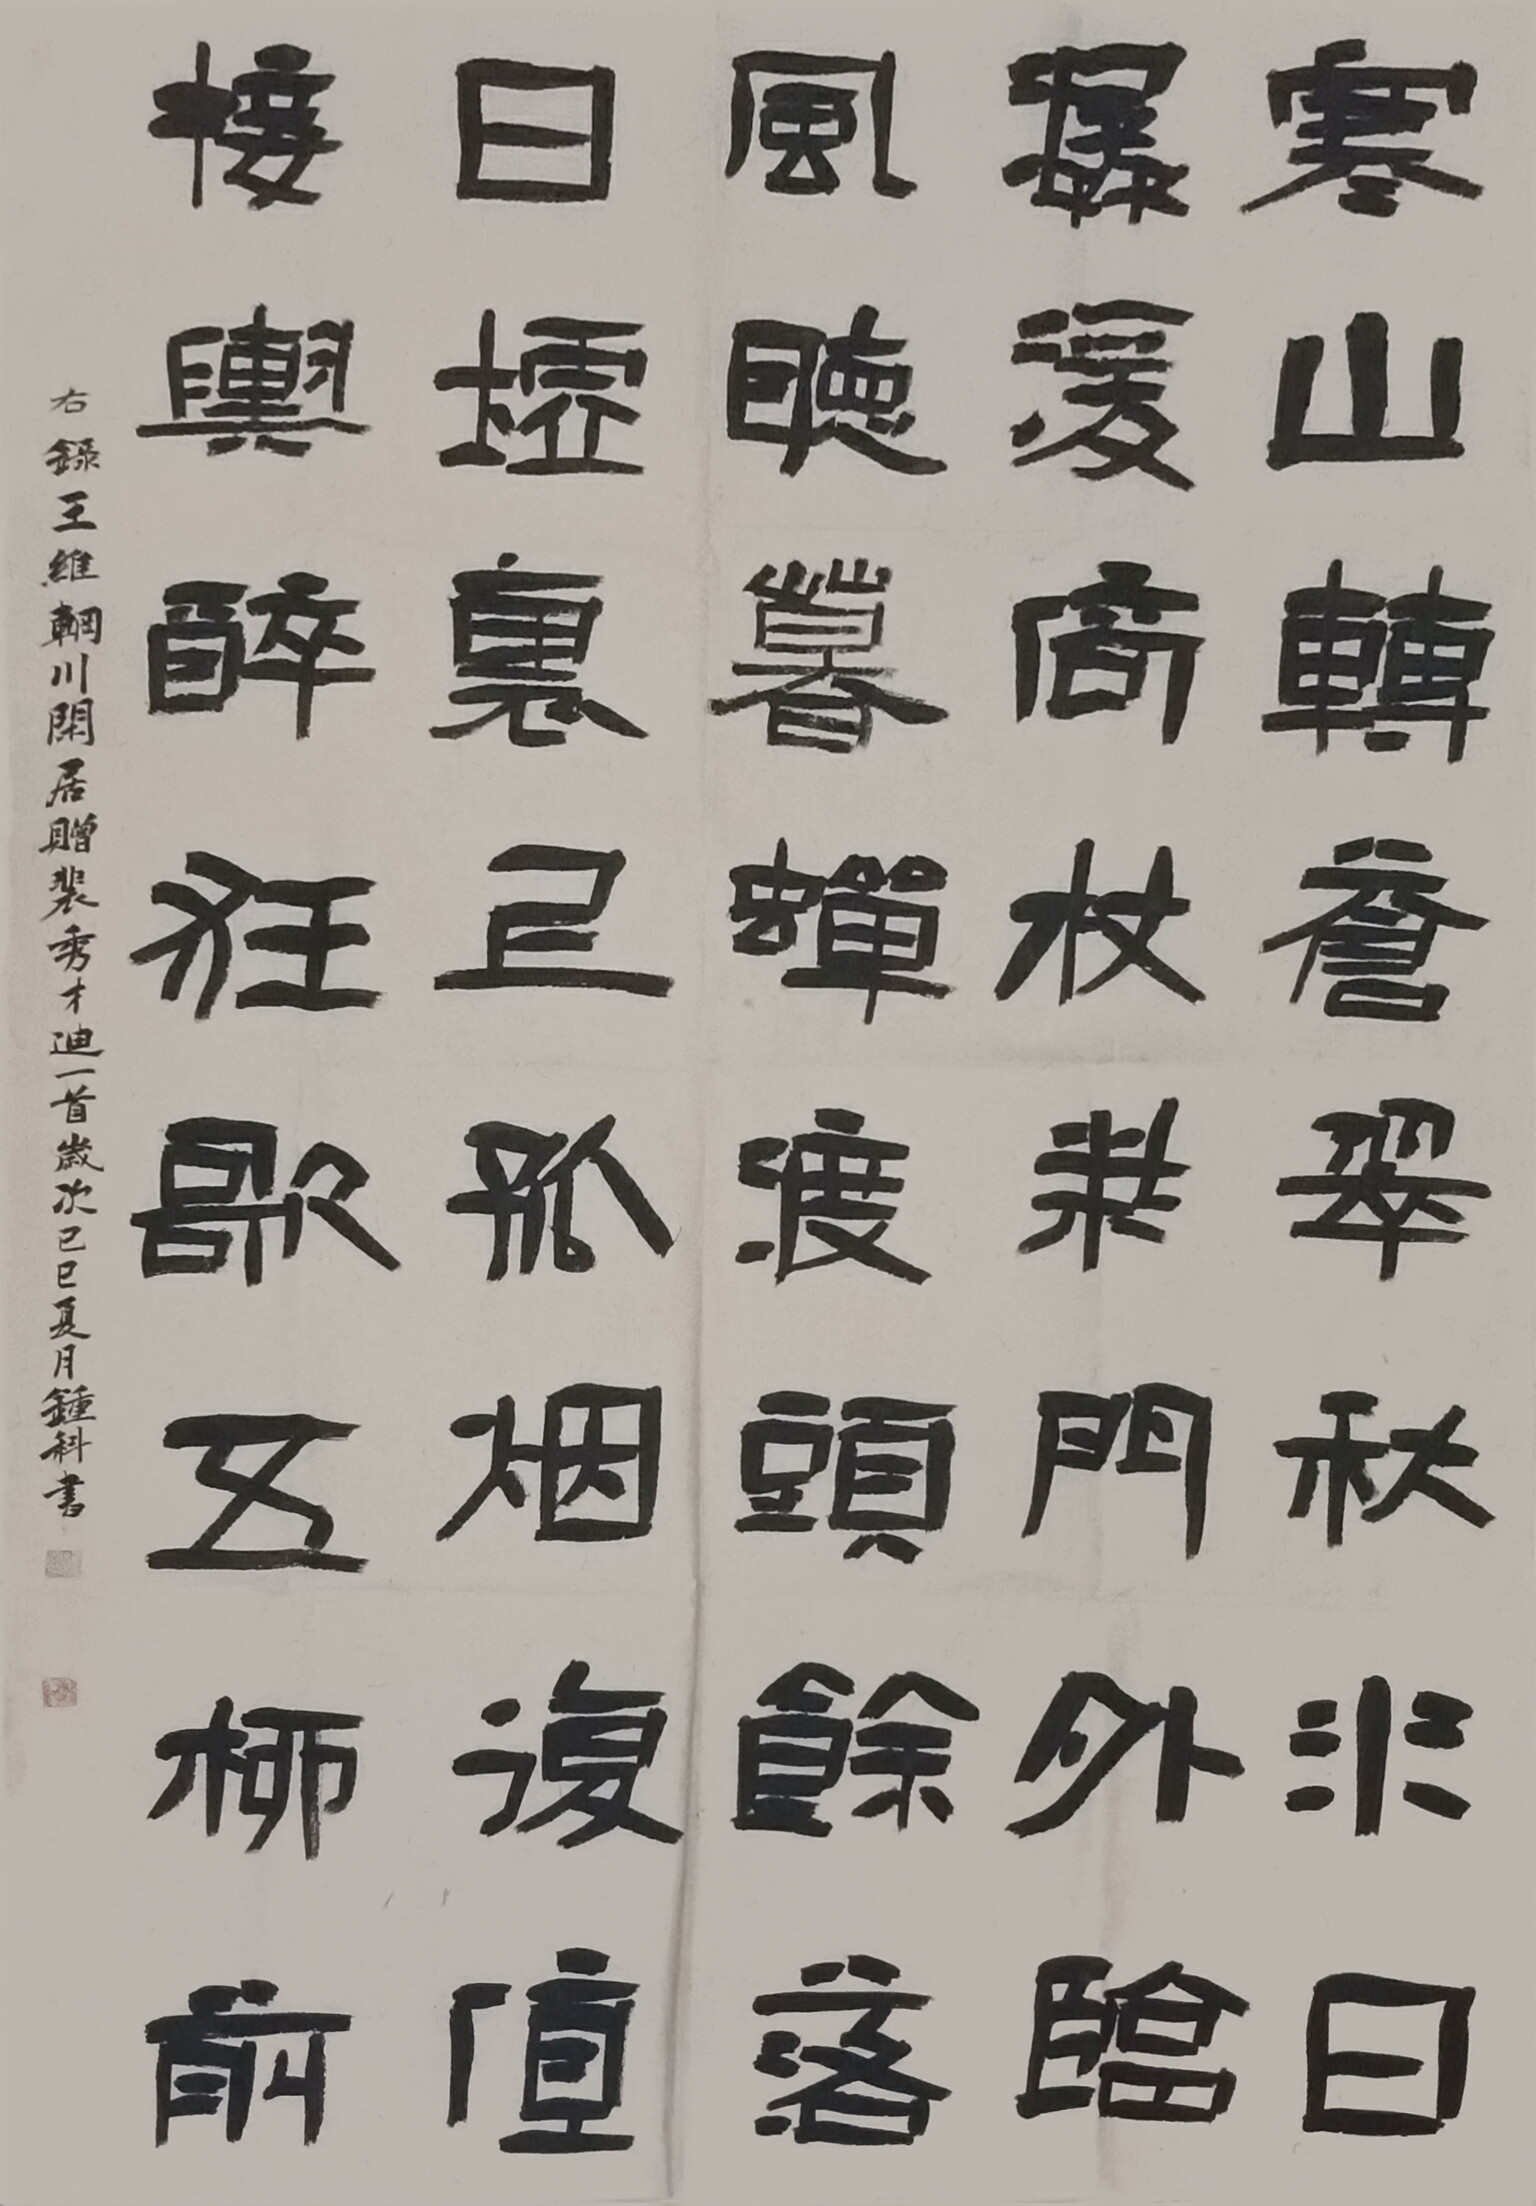 寒山轉蒼翠秋水日
潺湲倚杖柴門外臨
風聽暮蟬渡頭餘落
日墟裏上孤烟復值
接輿醉狂歌五柳前
右錄王維輞川閑居贈裴秀才迪一首歲次己巳夏月鍾科書